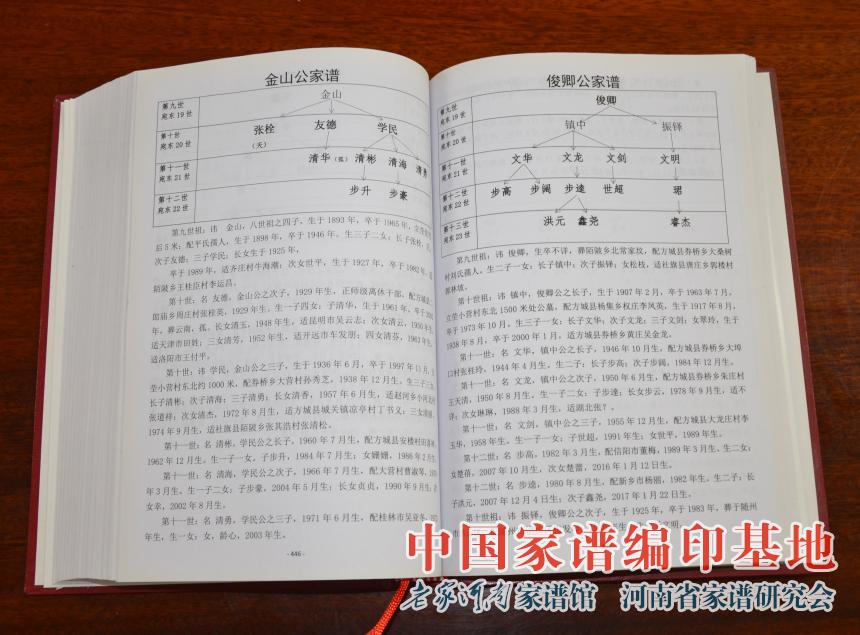 金山公家谱
第九世
宛东19世
金山
第十世
宛东20世
张栓
(夭)
友德
学民
第十一世
宛东21世
清华(孤)
清彬
清海
清勇
第十二世
宛东22世
步升
步豪
第九世祖:讳 金山,八世祖之四子,生于1893年,卒于1965年,
后5米;配平氏孺人,生于1898年,卒于1946年。生三子二女:长子张栓,
次子友德;三子学民;长女生于1925年,
卒于1989年,适齐庄村牛海潮;次女世平,生于1927年,卒于1982年,适
陌陂乡王桂臣村李运昌。
第十世:名 友德,金山公之次子,1929年生,正师级离休干部,配方城县
郎庙乡周庄村张桂英,1929年生,生一子四女:子清华,生于1961年,卒于
年,葬云南,孤,长女清玉,1948年生,适昆明市吴云志;次女清云,1950年生
适天津市田姓;三女清芳,1952年生,适开远市车发朋;四女清芬,1963年生
适洛阳市王付平。
第十世:讳 学民,金山公之三子,生于1936年6月,卒于1997年11月,立
垒小营村东北约1000米,配券桥乡大营村孙秀芝,1938年12月生。生三子三女
长子清彬;次子清海;三子清勇;长女清香,1957年6月生,适赵河乡小河北
张道祥;次女清杰,1972年8月生,适方城县城关镇凉亭村丁书义;三女清丽
1974年9月生,适社旗县陌陂乡张其浩村张清松。
第十一世:名 清彬,学民公之长子,1960年7月生,配方城县安楼村田喜林
1962年12月生。生一子一女,子步升,1984年7月生;女姗姗,1986年2月生。
第十一世:名 清海,学民公之次子,1966年7月生,配大营村曹淑琴,197
年3月生,生一子二女:子步豪,2004年5月生;长女贞贞,1990年9月生;次
女幸,2002年8月生。
第十一世:名 清勇,学民公之三子,1971年6月生,配桂林市吴亚东,
年生,生一女:女,龄心,2003年生。
-446-
俊卿公家谱
第九世
宛东19世
俊卿
第十世
宛东20世
镇中
振铎
第十一世
宛东21世
文华
文龙
文剑
文明
第十二世
宛东22世
步高
步阔
步逵
世超
珺
第十三世
宛东23世
洪元
鑫尧
睿杰
第九世祖:讳 俊卿,生卒不详,葬陌陂乡北常家坟,配方城县券桥乡大桑树
村刘氏孺人,生二子一女:长子镇中;次子振铎;女松枝,适社旗县唐庄乡郭楼村
郭林坡。
第十世祖:讳 镇中,俊卿公之长子,生于1907年2月,卒于1963年7月,
立垒小营村东北1500米处公墓,配方城县杨集乡权庄李凤英,生于1917年8月,
卒于1973年10月。生三子一女:长子文华;次子文龙;三子文剑;女翠玲,生于
1938年8月,卒于2000年1月,适方城县券桥乡黄庄吴金龙。
第十一世:名 文华,镇中公之长子,1946年10月生,配方城县券桥乡大埠
口村张桂玲,1944年4月生,生二子:长子步高;次子步阔,1984年12月生。
第十一世:名 文龙,镇中公之次子,1950年6月生,配方城县券桥乡朱庄村
王天清,1950年8月生,生一子二女:子步逵;长女步云,1978年9月生,适不
详;次女琳琳,1988年3月生,适湖北张?。
第十一世:名 文剑,镇中公之三子,1955年12月生,配方城县大龙庄村李
玉华,1958年生。生一子一女:子世超,1991年生;女世平,1989年生。
第十二世:名 步高,1982年3月生,配信阳市董梅,1989年3月生,生二女:
女楚蓓,2007年10月生,次女楚蕾,2016年1月12日生。
第十二世:名 步逵,1980年8月生,配新乡市杨丽,1982年生。生二子:长
子洪元,2007年12月4日生;次子鑫尧,2017年1月22日生。
第十世祖:讳 振铎,俊卿公之次子,生于1925年,卒于1983年,葬于随州
中国家谱编印基地
老家河南家谱馆 河南省家谱研究会